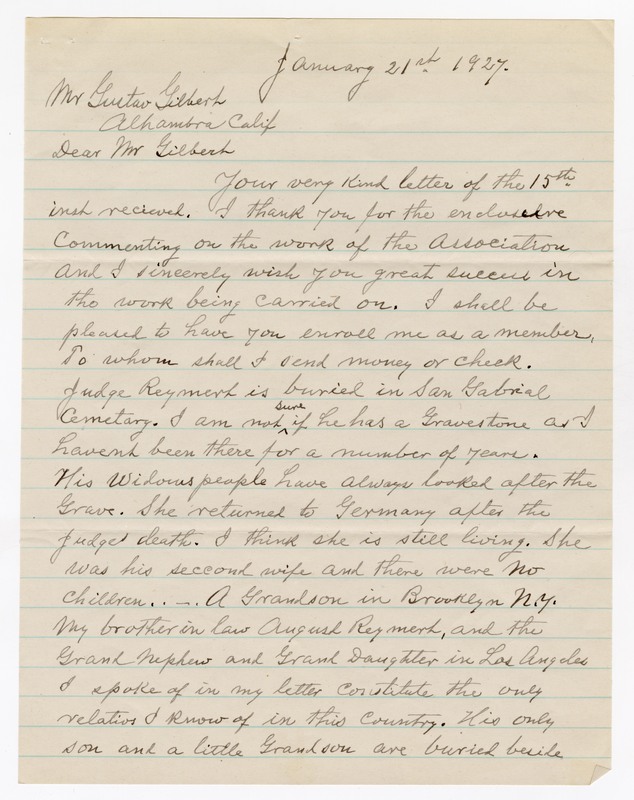 January 21st 1927.
Mr Gustav Gilbert
Alhambra Calif
Dear Mr Gilbert
Your very kind letter of the 15th
inst recieved. I thank you for the enclosure
Commenting on the work of the Association
and I sincerely wish you great success in
the work being carried on. I shall be
pleased to have you enroll me as a member,
To whom shall I send money or check.
Judge Reymert is buried in San Gabrial
Cemetary. I am not sure if he has a Gravestone as I
havent been there for a number of years.
His Widows people have always looked after the
Grave. She returned to Germany after the
Judges death. I think she is still living. She
was his seccond wife and there were no
children.. — A Grandson in Brooklyn N.Y.
My brother in law August Reymert, and the
Grand Nephew and Grand Daughter in Los Angeles
I spoke of in my letter constitute the only
relatios I know of in this Country. His only
son and a little Grandson are buried beside